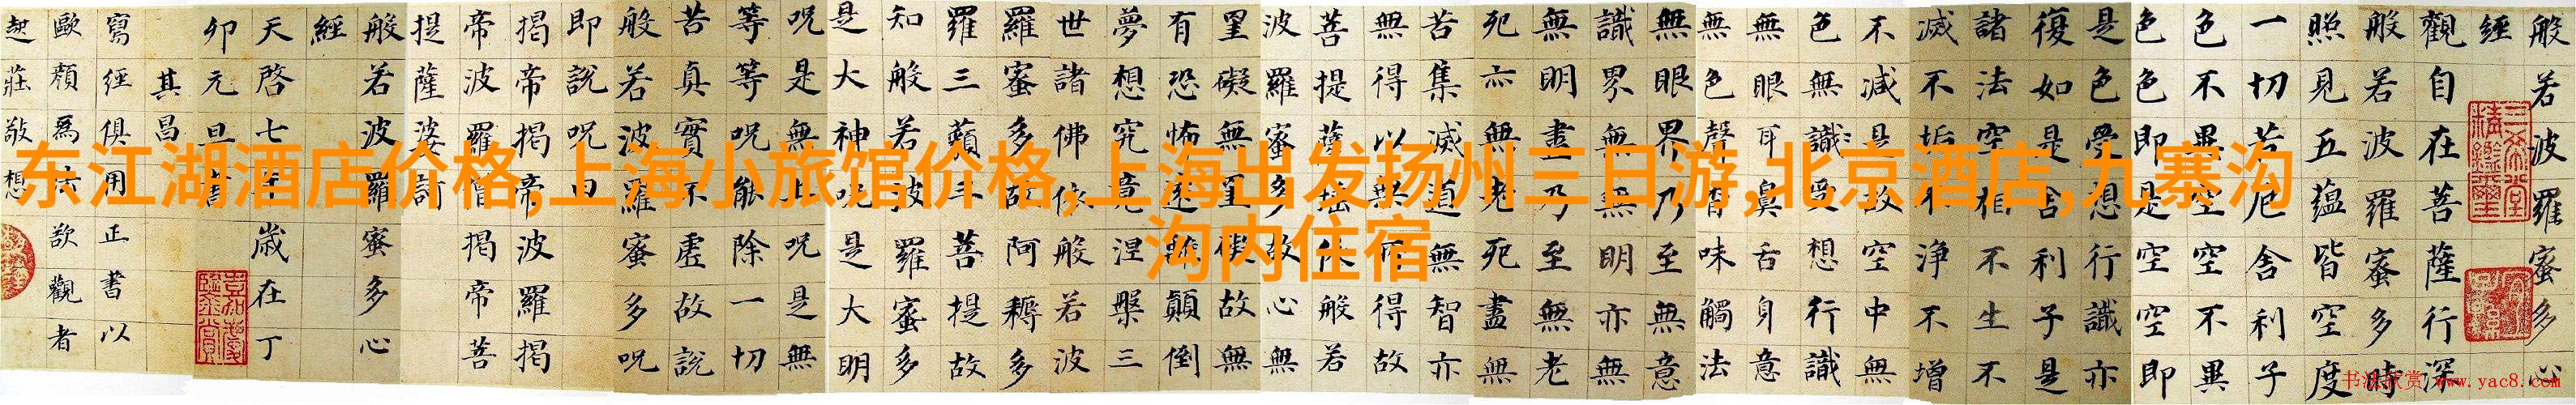 般若波羅蜜多心
經
觀自在菩薩行深
般若波羅蜜多時
照見五蘊皆空度
一切苦厄舍利子
色不異空空不異
色色即是空空即
是色受想行識亦
復如是舍利子是
諸法空相不生不
滅不垢不淨不增
不減是故空中無
色無識受想行識
無眼耳鼻舌身意
無色聲香味觸法
無眼界乃至無意
識界無無明亦無
無明盡乃至無老
死亦無老死盡無
苦集滅道無智亦
無得以無所得故
菩提薩埵依般若
波羅蜜多故心無
罣礙無罣礙故無
有恐怖遠離顛倒
夢想究竟涅槃三
世諸佛依般若波
羅蜜多故阿耨多
羅三藐三菩提故
知般若波羅蜜多
是大神呪是大明
呪是無上呪是無
等等呪能除一切
苦真實不虛故說
般若波羅蜜多呪
即說呪曰
揭帝揭帝波羅揭
帝波羅僧揭帝菩
提薩婆訶
般若波羅蜜多心
經
天啓七年歲在丁
卯元旦書
其昌
寫經俱用正書以
歐顏爲法欲觀者
起莊敬想
东江湖酒店价格,上海小旅馆价格,上海出发扬州三日游,北京酒店,九寨沟
沟内住宿
书法欣赏 www.yac8.com